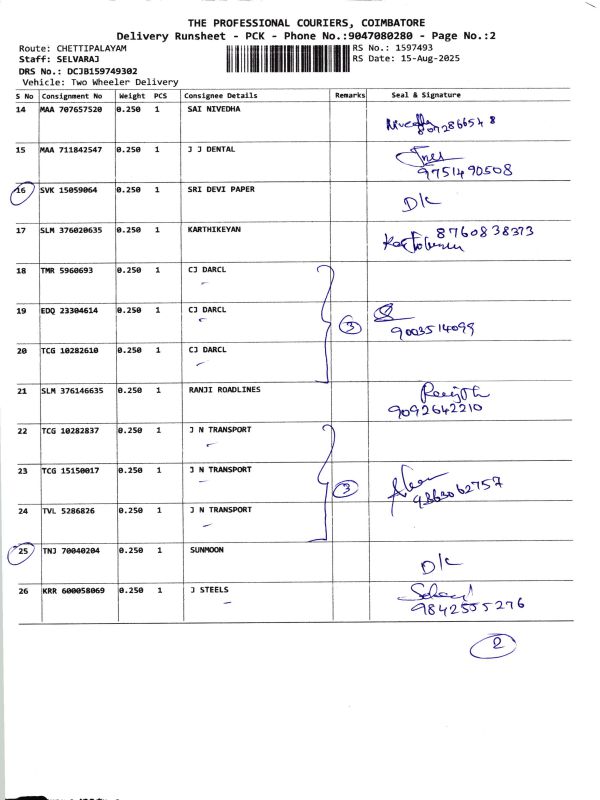 THE PROFESSIONAL COURIERS, COIMBATORE
Delivery Runsheet - PCK - Phone No.:9047080280 - Page No.:2
Route: CHETTIPALAYAM RS No.: 1597493
Staff: SELVARAJ RS Date: 15-Aug-2025
DRS No.: DCJB159749302
Vehicle: Two Wheeler Delivery
S No Consignment No Weight PCS Consignee Details Remarks Seal & Signature
14 MAA 707657520 0.250 1 SAI NIVEDHA
15 MAA 711842547 0.250 1 J J DENTAL
9751490508
16 SVK 15059064 0.250 1 SRI DEVI PAPER
D/C
17 SLM 376020635 0.250 1 KARTHIKEYAN 8760838373
18 TMR 5960693 0.250 1 CJ DARCL
19 EDQ 23304614 0.250 1 CJ DARCL
3 9003514099
20 TCG 10282610 0.250 1 CJ DARCL
21 SLM 376146635 0.250 1 RANJI ROADLINES
9092642210
22 TCG 10282837 0.250 1 J N TRANSPORT
23 TCG 15150017 0.250 1 J N TRANSPORT
3 9863062757
24 TVL 5286826 0.250 1 J N TRANSPORT
25 TNJ 70040204 0.250 1 SUNMOON
D/C
26 KRR 600058069 0.250 1 J STEELS
9842555276
2